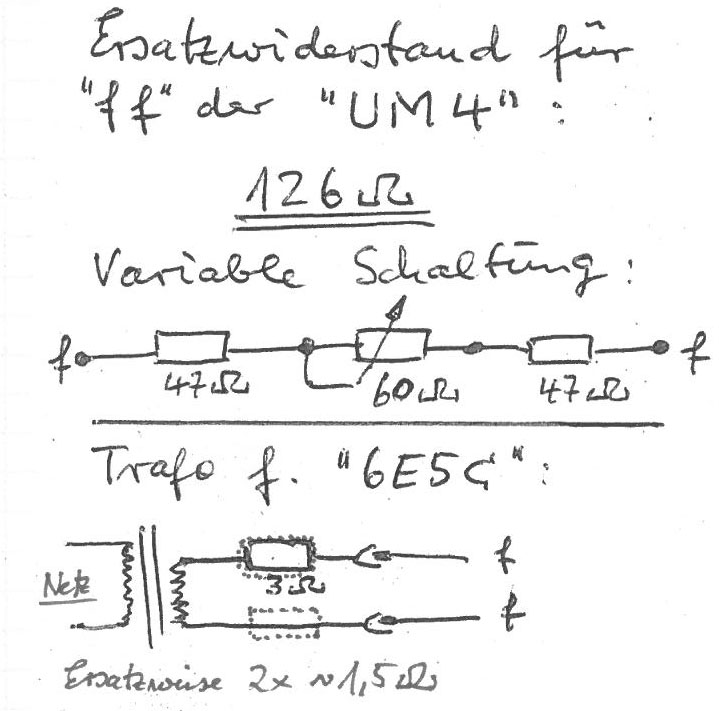 Ersatzwiderstand für
"ff" der "UM4":
126Ω
Variable Schaltung:
f 47Ω 60Ω 47Ω f
Trafo f. "6E5C":
Netz 3Ω f
f
Ersatzweise 2x ~1,5Ω